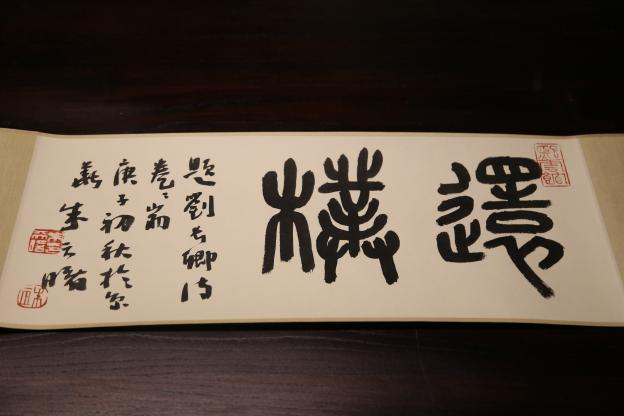 還樸
題劉長卿詩
卷之端
庚子初秋於京
華朱天曙